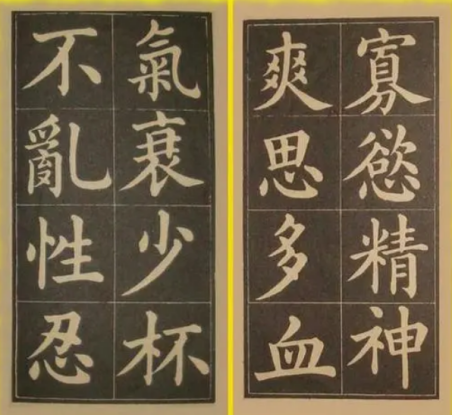 寡慾精神
爽思多血
氣衰少杯
不亂性忍